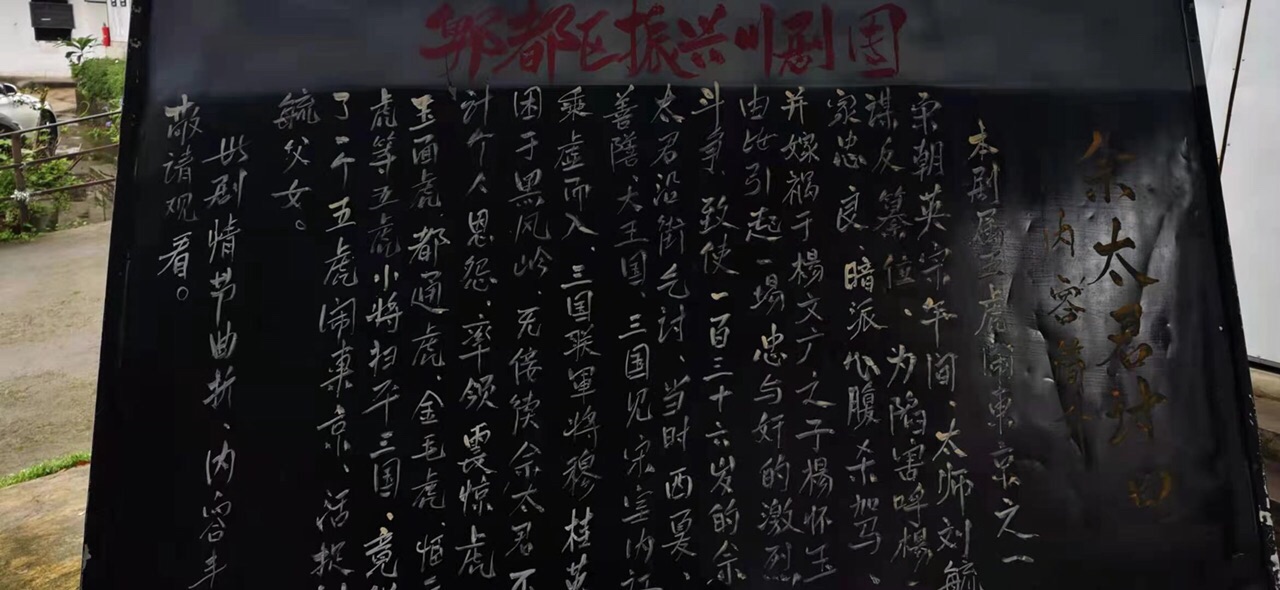 郫都区振兴川剧团
佘太君计
内容简介
本剧属五虎闹東京之一
宋朝英宗年间、太师刘毓
谋反篡位、为陷害呼楊、
家忠良、暗派心腹杀加马、
并嫁祸于楊文广之子楊怀玉
由此引起一場忠与奸的激烈
斗争、致使一百三十六岁的佘
太君沿街乞讨、当时西夏、
善鄯、大王国、三国见宋室内讧
乘虚而入、三国联軍将穆桂英
困于黑风岭、无侫
计个人恩怨、率领震惊虎
玉面虎、都通虎、金毛虎、恒
虎等五虎小将扫平三国、竟
了一个五虎闹東京、活捉
毓父女。
此剧情节曲折、内容丰
敬请观看。